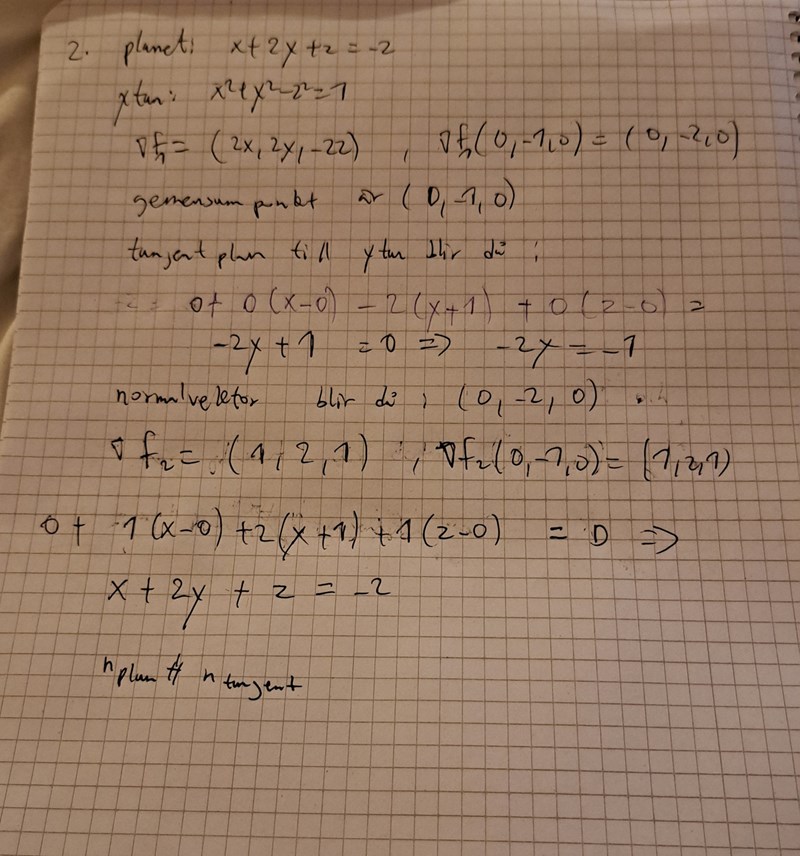 2. planet: x+2y+z=-2
ytan: x²+y²-z²=1
∇f₁= (2x, 2y, -2z) , ∇f₁(0,-1,0) = (0,-2,0)
gemensam punkt är (0,-1,0)
tangentplan till ytan blir då :
0+ 0(x-0) - 2(y+1) + 0(z-0) =
-2y+1 =0 => -2y=-1
normalvektor blir då ; (0,-2,0)
∇f₂= (1,2,1) , ∇f₂(0,-1,0)= (1,2,1)
0+ 1(x-0)+2(y+1)+1(z-0) = 0 =>
x+2y+z=-2
n plan ∦ n tangent